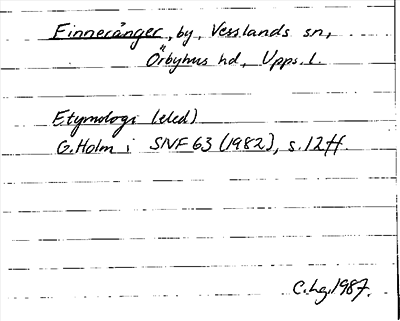 Finneränger, by, Vesslands sn,
Örbyhus hd, Upps. l.
Etymologi (eled)
G. Holm i SNF 63 (1982), s. 12 ff.
C. Lg. 1987.